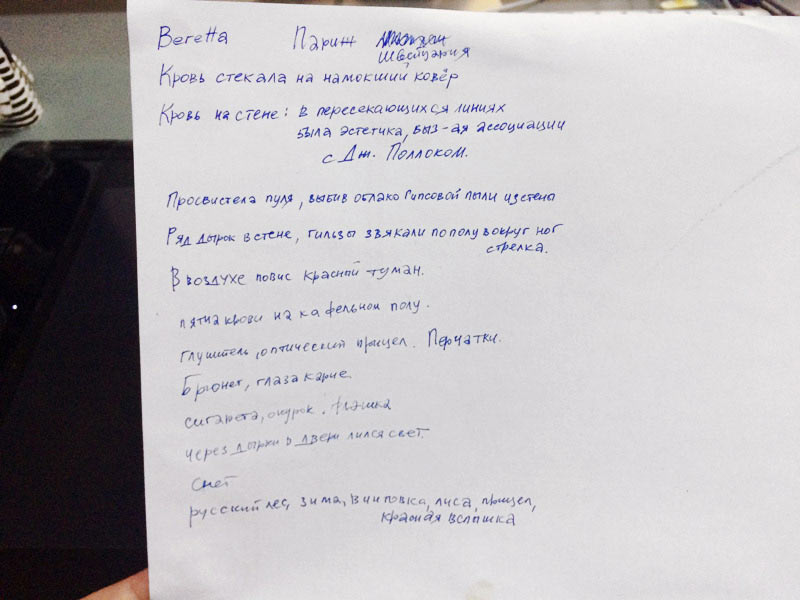 Beretta Париж
Швейцария
Кровь стекала на намокший ковёр
Кровь на стене: в пересекающихся линиях
была эстетика, выз-ая ассоциации
с Дж. Поллоком.
Просвистела пуля, выбив облако гипсовой пыли из стены
Ряд дырок в стене, гильзы звякали по полу вокруг ног
стрелка.
В воздухе повис красный туман.
пятна крови на кафельном полу.
глушитель, оптический прицел. Перчатки.
Брюнет, глаза карие.
сигарета, окурок.
через дырки в двери лился свет.
снег
русский лес, зима, винтовка, лиса, прицел,
красная вспышка